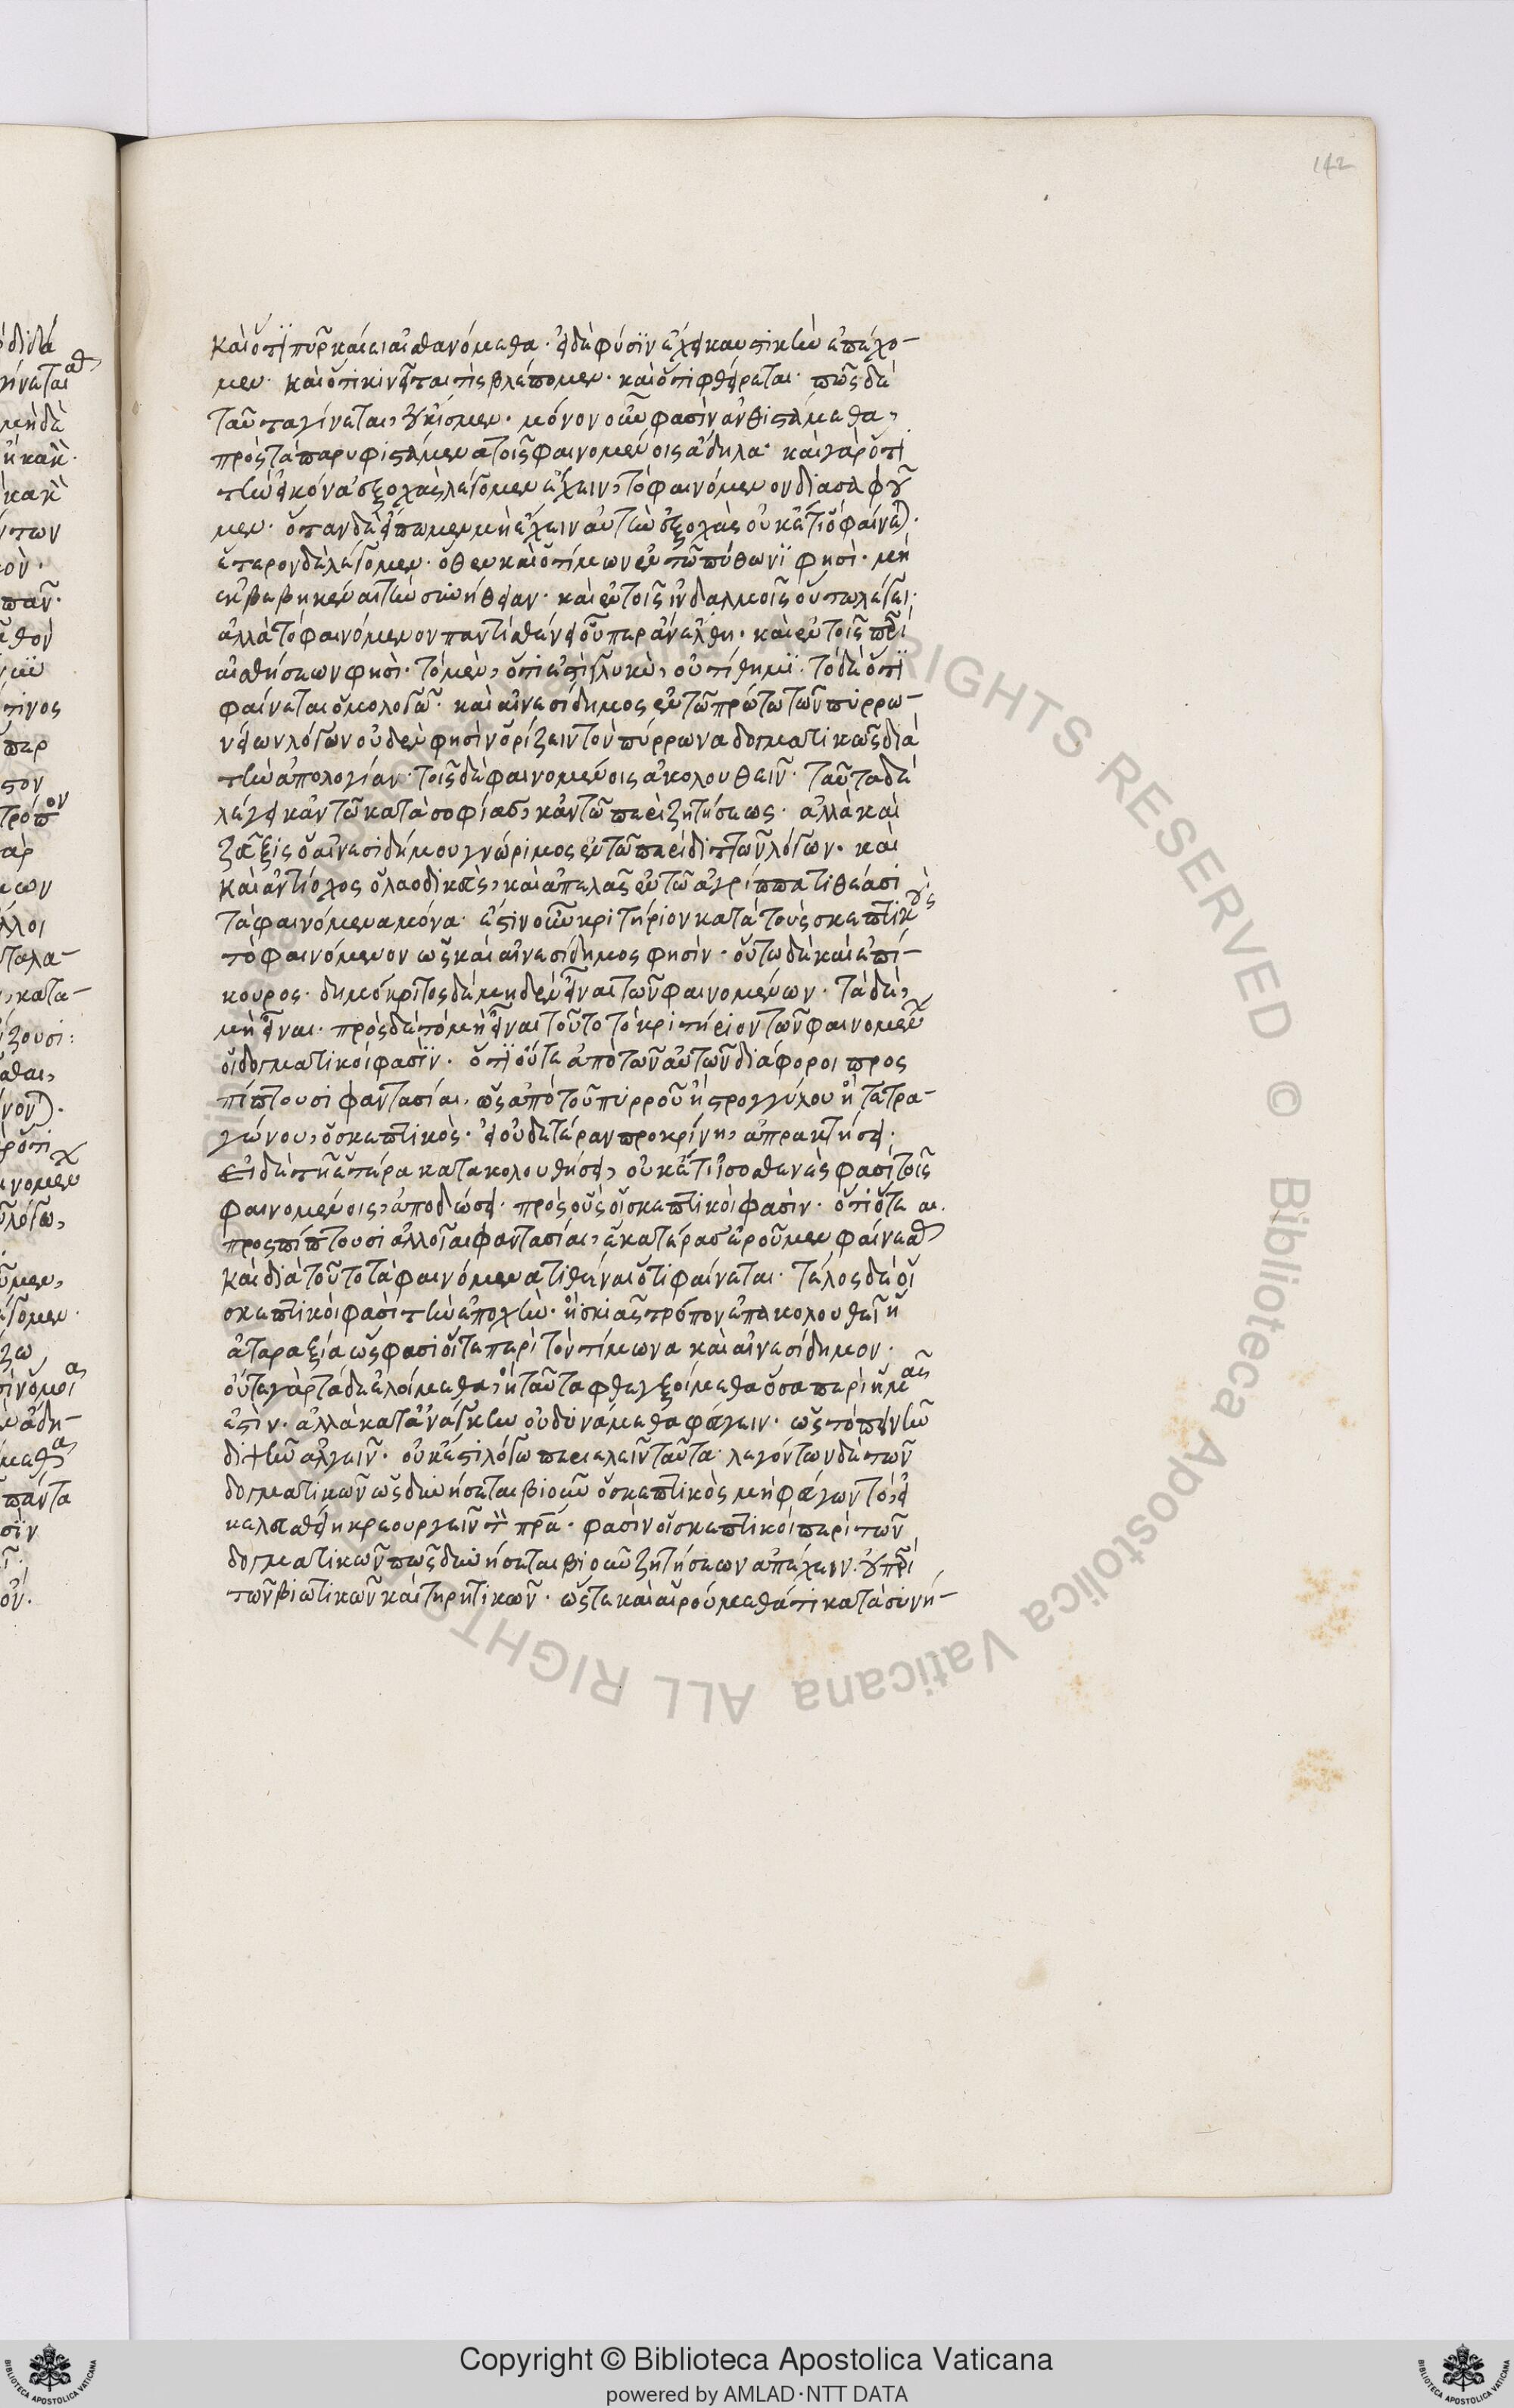 142
καὶ ὅτι πῦρ καίει αἰσθανόμεθα· εἰ δὲ φύσιν ἔχει καυστικὴν ἐπέχο-
μεν· καὶ ὅτι κινεῖται τὶς βλέπομεν· καὶ ὅτι φθείρεται· πῶς δὲ
ταῦτα γίνεται, οὐκ ἴσμεν· μόνον οὖν φασὶν ἀνθιστάμεθα,
πρὸς τὰ παρυφιστάμενα τοῖς φαινομένοις ἄδηλα· καὶ γὰρ ὅτι
τὴν εἰκόνα ἐξοχὰς λέγομεν ἔχειν, τὸ φαινόμενον διασαφοῦ
μεν· ὅταν δὲ εἴπωμεν μὴ ἔχειν αὐτὴν ἐξοχὰς οὐκέτι ὃ φαίνεται·
ἕτερον δὲ λέγομεν· ὅθεν καὶ ὁ τίμων ἐν τῷ πύθωνι φησὶ· μὴ
ἐκβεβηκέναι τὴν συνήθειαν· καὶ ἐν τοῖς ἰνδαλμοῖς οὕτω λέγει·
ἀλλὰ τὸ φαινόμενον παντὶ σθένει οὗπερ ἂν ἔλθη· καὶ ἐν τοῖς περὶ
αἰσθήσεων φησὶ· τὸ μέν, ὅτι ἐστὶ γλυκὺ, οὐ τίθημι· τὸ δὲ ὅτι
φαίνεται ὁμολογῶ· καὶ αἰνεσίδημος ἐν τῷ πρώτω τῶν πυρρω-
νείων λόγων οὐδέν φησὶν ὁρίζειν τὸν πύρρωνα δογματικῶς διὰ
τὴν ἀπολογίαν· τοῖς δὲ φαινομένοις ἀκολουθεῖν· ταῦτα δὲ
λέγει κἀν τῷ κατὰ σοφίας, κἀν τῷ περὶ ζητήσεως· ἀλλὰ καὶ
ζεῦξις ὁ αἰνεσιδήμου γνώριμος ἐν τῷ περὶ διττῶν λόγων· καὶ
καὶ ἀντίοχος ὁ λαοδικεὺς, καὶ ἀπελλᾶς ἐν τῷ ἀγρίππα τιθέασι
τὰ φαινόμενα μόνα· ἔστιν οὖν κριτήριον κατὰ τοὺς σκεπτικοὺς
τὸ φαινόμενον ὡς καὶ αἰνεσίδημος φησὶν· οὕτω δὲ καὶ ἐπί-
κουρος· δημόκριτος δὲ μηδὲν εἶναι τῶν φαινομένων· τὰ δὲ,
μὴ εἶναι· πρὸς δὲ τὸ μὴ εἶναι τοῦτο τὸ κριτήριον τῶν φαινομένων
οἱ δογματικοί φασιν· ὅτι ὅτε ἀπὸ τῶν αὐτῶν διάφοροι προς
πίπτουσι φαντασίαι, ὡς ἀπὸ τοῦ πύρρου ἢ στρογγύλου ἢ τετρα-
γώνου, ὁ σκεπτικὸς· εἰ οὐδετέραν προκρίνη, ἀπρακτήσει·
εἰ δὲ τῆ ἑτέρα κατακολουθήσει, οὐκέτι ἰσοσθενὲς φασὶ τοῖς
φαινομένοις, ἀποδώσει· πρὸς οὓς οἱ σκεπτικοὶ φασὶν· ὅτι ὅτε αι
προσπίπτουσι ἀλλοῖαι φαντασίαι, ἑκατέρας ἐροῦμεν φαίνεσθαι
καὶ διὰ τοῦτο τὰ φαινόμενα τιθέναι ὅτι φαίνεται· τέλος δὲ οἱ
σκεπτικοί φασὶ τὴν ἐποχὴν· ἧ σκιᾶς τρόπον ἐπακολουθεῖ ἡ
ἀταραξία ὥς φασι οἵ τε περὶ τὸν τίμωνα καὶ αἰνεσίδημον·
οὔτε γὰρ τάδε ἑλοίμεθα, ἢ ταῦτα φθεγξοίμεθα ὅσα περὶ ἡμᾶς
ἐστὶν· ἀλλὰ κατ' ἀνάγκην οὐ δυνάμεθα φεύγειν· ὡς τὸ πεινῆν
διψῆν ἀλγεῖν· οὐκ ἔστι λόγω περιελεῖν ταῦτα· λεγόντων δὲ τῶν
δογματικῶν ὡς δυνήσεται βιοῦν ὁ σκεπτικὸς μὴ φεύγων τὸ, εἰ
κελευσθείη κρεουργεῖν τὸν πατέρα· φασὶν οἱ σκεπτικοὶ περὶ τῶν
δογματικῶν πῶς δυνήσεται βιοῦν ζητήσεων ἀπέχειν· οὐ περὶ
τῶν βιωτικῶν καὶ τηρητικῶν· ὥστε καὶ αἱρούμεθά τι κατὰ συνή-
Copyright © Biblioteca Apostolica Vaticana
powered by AMLAD·NTT DATA